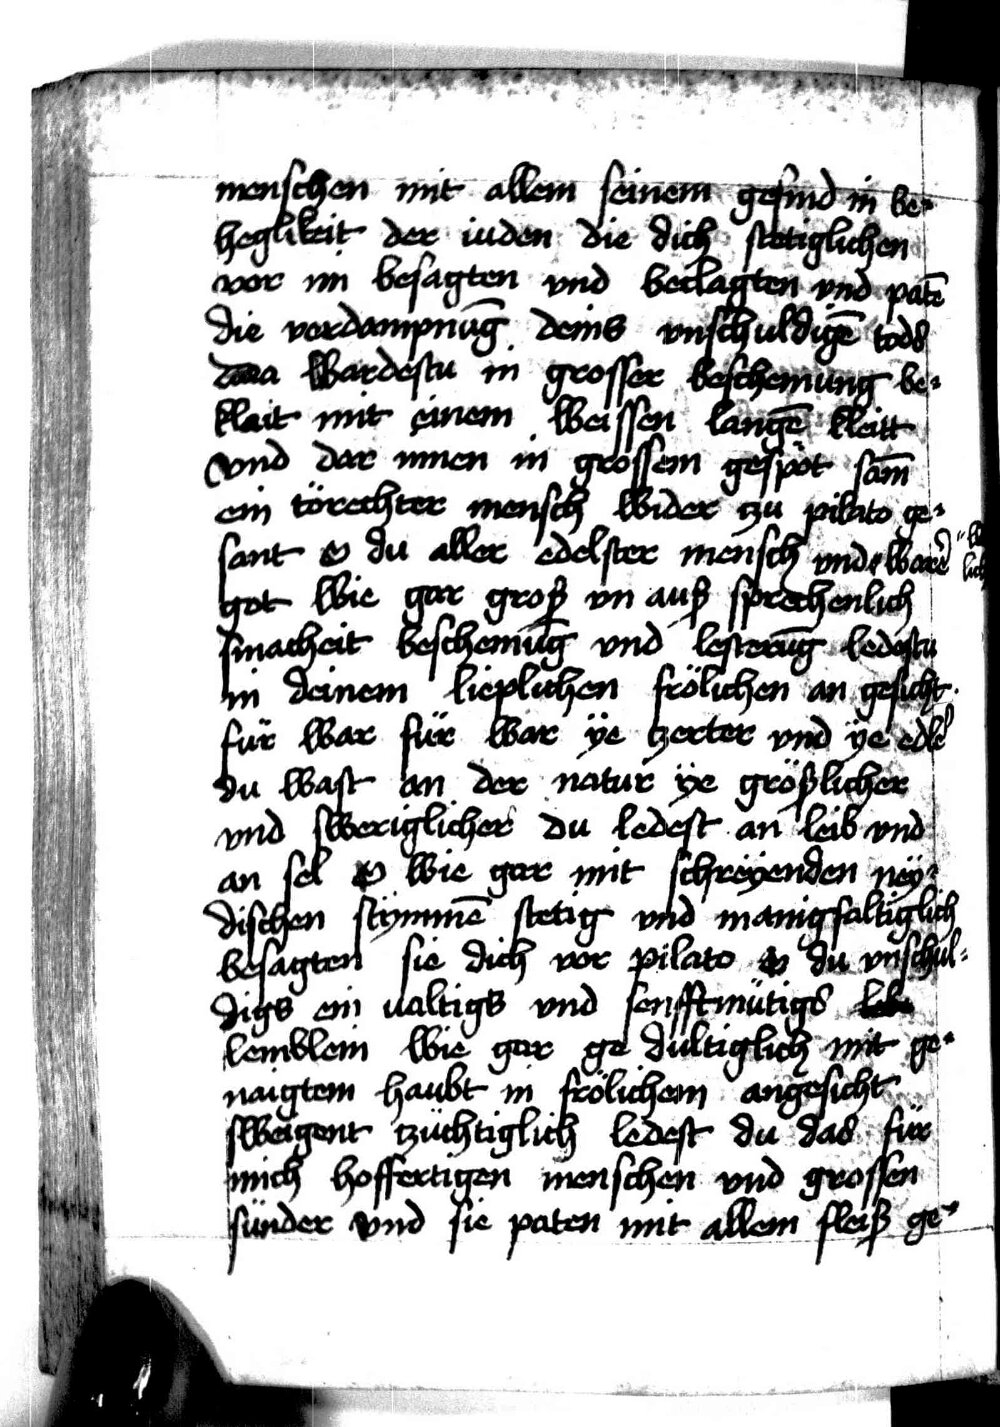 menschen mit allem seinem gesind in be-
heglikeit der iuden die dich stetiglichen
vor im besagten vnd beclagten vnd patē
die verdampnūg deins vnschuldigē tods
da wardestu in grosser beschemung be-
klait mit einem weissen langē kleitt
vnd dar innen in grossem gespöt sam̄
ein törechter mensch wider tzu pilato ge-
sant O du aller edelster mensch vnd warer
got wie gar groß vn auß sprechenlich
smacheit beschemūg vnd lesterūg ledestu
in deinem lieplichen frölichen an gesicht
für war für war ÿe tzerter vnd ÿe edler
du wast an der natur ÿe größlicher
vnd sweriglicher du ledest an leib vnd
an sel O wie gar mit schreÿenden neÿ-
dischen stÿmmē stetig vnd manigfaltiglich
besagten sie dich vor pilato O du vnschul-
digs ein ualtigs vnd senfftmütigs
lemblein wie gar ge dultiglich mit ge-
naigtem haubt in frölichem angesicht
sweigent tzüchtiglich ledest du das für
mich hoffertigen menschen vnd grossen
sünder vnd sie paten mit allem fleiß ge-